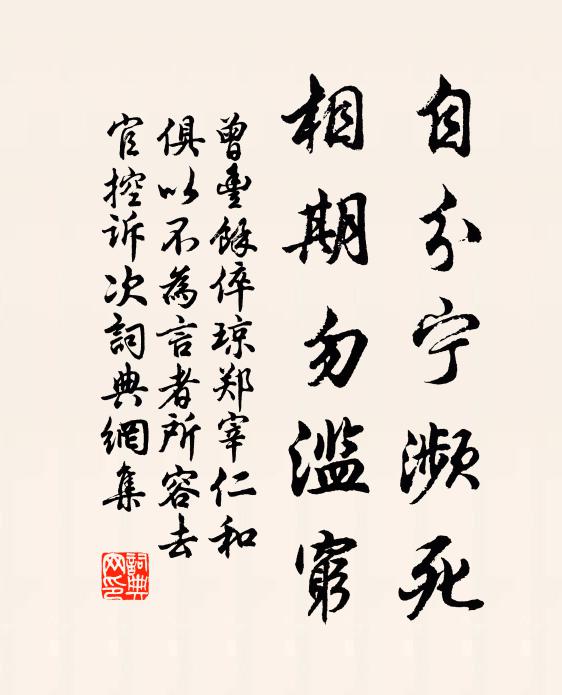 自分宁濒死
相期勿滥窮
曾豊餘倅琼郑宰仁和
俱以不為言者所容去
官控诉次詞典網集
詞典网印